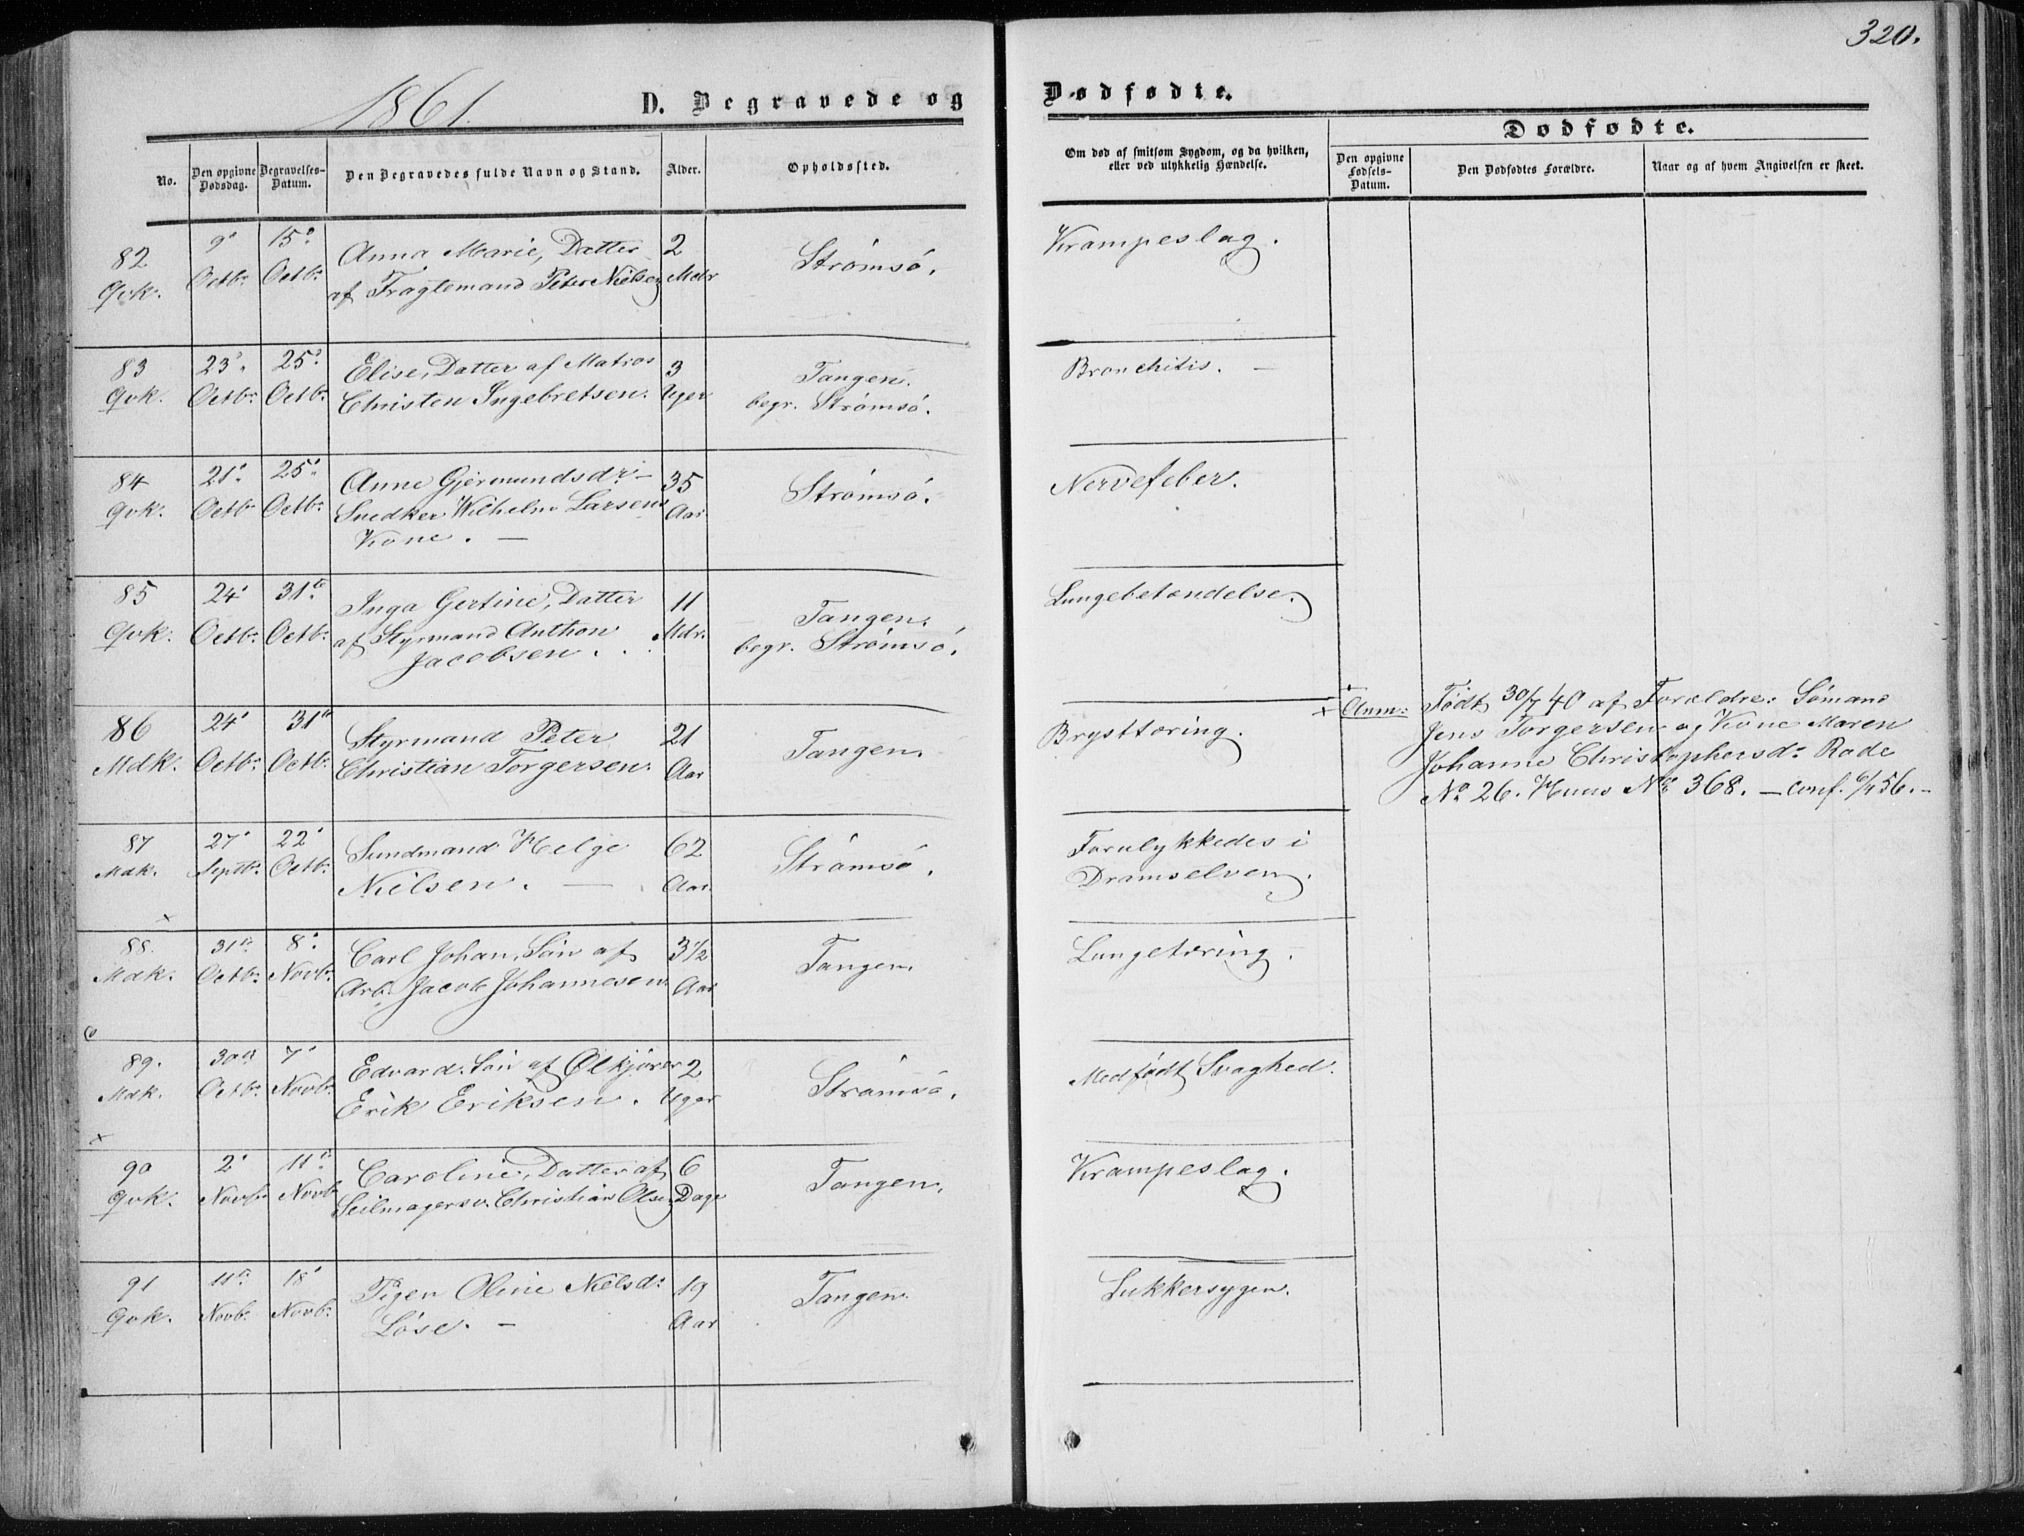 320.
1861.
D. Begravede og Dødfødte.
Dødfødte.
No.
Den opgivne Dødsdag.
Begravelses-Datum.
Den Begravedes fulde Navn og Stand.
Alder.
Opholdssted.
Om død af smitsom Sygdom, og da hvilken, eller ved ulykkelig Hændelse.
Den opgivne Fødsels-Datum.
Den Dødfødtes Forældre.
Naar og af hvem Angivelsen er skeet.
82 9' 15' Anna Marie, Datter 2 Strømsø. Krampeslag.
Qvk. Octbr. Octbr. af Fragtemand Peter Nielsen Mdr
83 23' 25' Elise, Datter af Matros 3 Tangen. Bronchitis. —
Qvk. Octbr. Octbr. Christen Ingebretsen. Uger begr. Strømsø.
84 21' 25' Anne Gjermundsdr. — 35 Strømsø. Nervefeber.
Qvk. Octbr Octbr. Snedker Wilhelm Larsens Aar
Kone. —
85 24' 31te Inga Gertine, Datter 11 Tangen. Lungebetændelse.
Qvk. Octbr. Octbr. af Styrmand Anthon Mdr. begr. Strømsø.
Jacobsen.
86 24' 31te Styrmand Peter 21 Tangen. Brysttæring.
Mdk. Octbr. Octbr. Christian Torgersen. Aar
x Anm: Født 30/7 40 af Forældre: Sømand
Jens Torgersen og Kone Maren
Johanne Christophersd. Rode
No 26. Huus No 368. — conf. 6/4 56. —
87 27' 22' Sundmand Helge 62 Strømsø. Forulykkedes i
Mdk. Septbr. Octbr. Nielsen. — Aar. Dramselven.
x
88. 31te 8' Carl Johan, Søn af 3 1/2 Tangen. Lungetæring.
Mdk. Octbr. Novbr. Arb. Jacob Johannesen Aar
89. 30te 7' Edvard, Søn af Ølkjører 2 Strømsø. Medfødt Svaghed.
Mdk. Octbr. Novbr. Erik Eriksen. Uger
x
90 2' 11te Caroline, Datter af 6 Tangen. Krampeslag.
Qvk. Novbr Novbr Seilmagersv. Christian Olsen Dage
91 11te 18' Pigen Oline Nielsd. 19 Tangen. Sukkersygen.
Qvk. Novbr. Novbr. Løse. — Aar